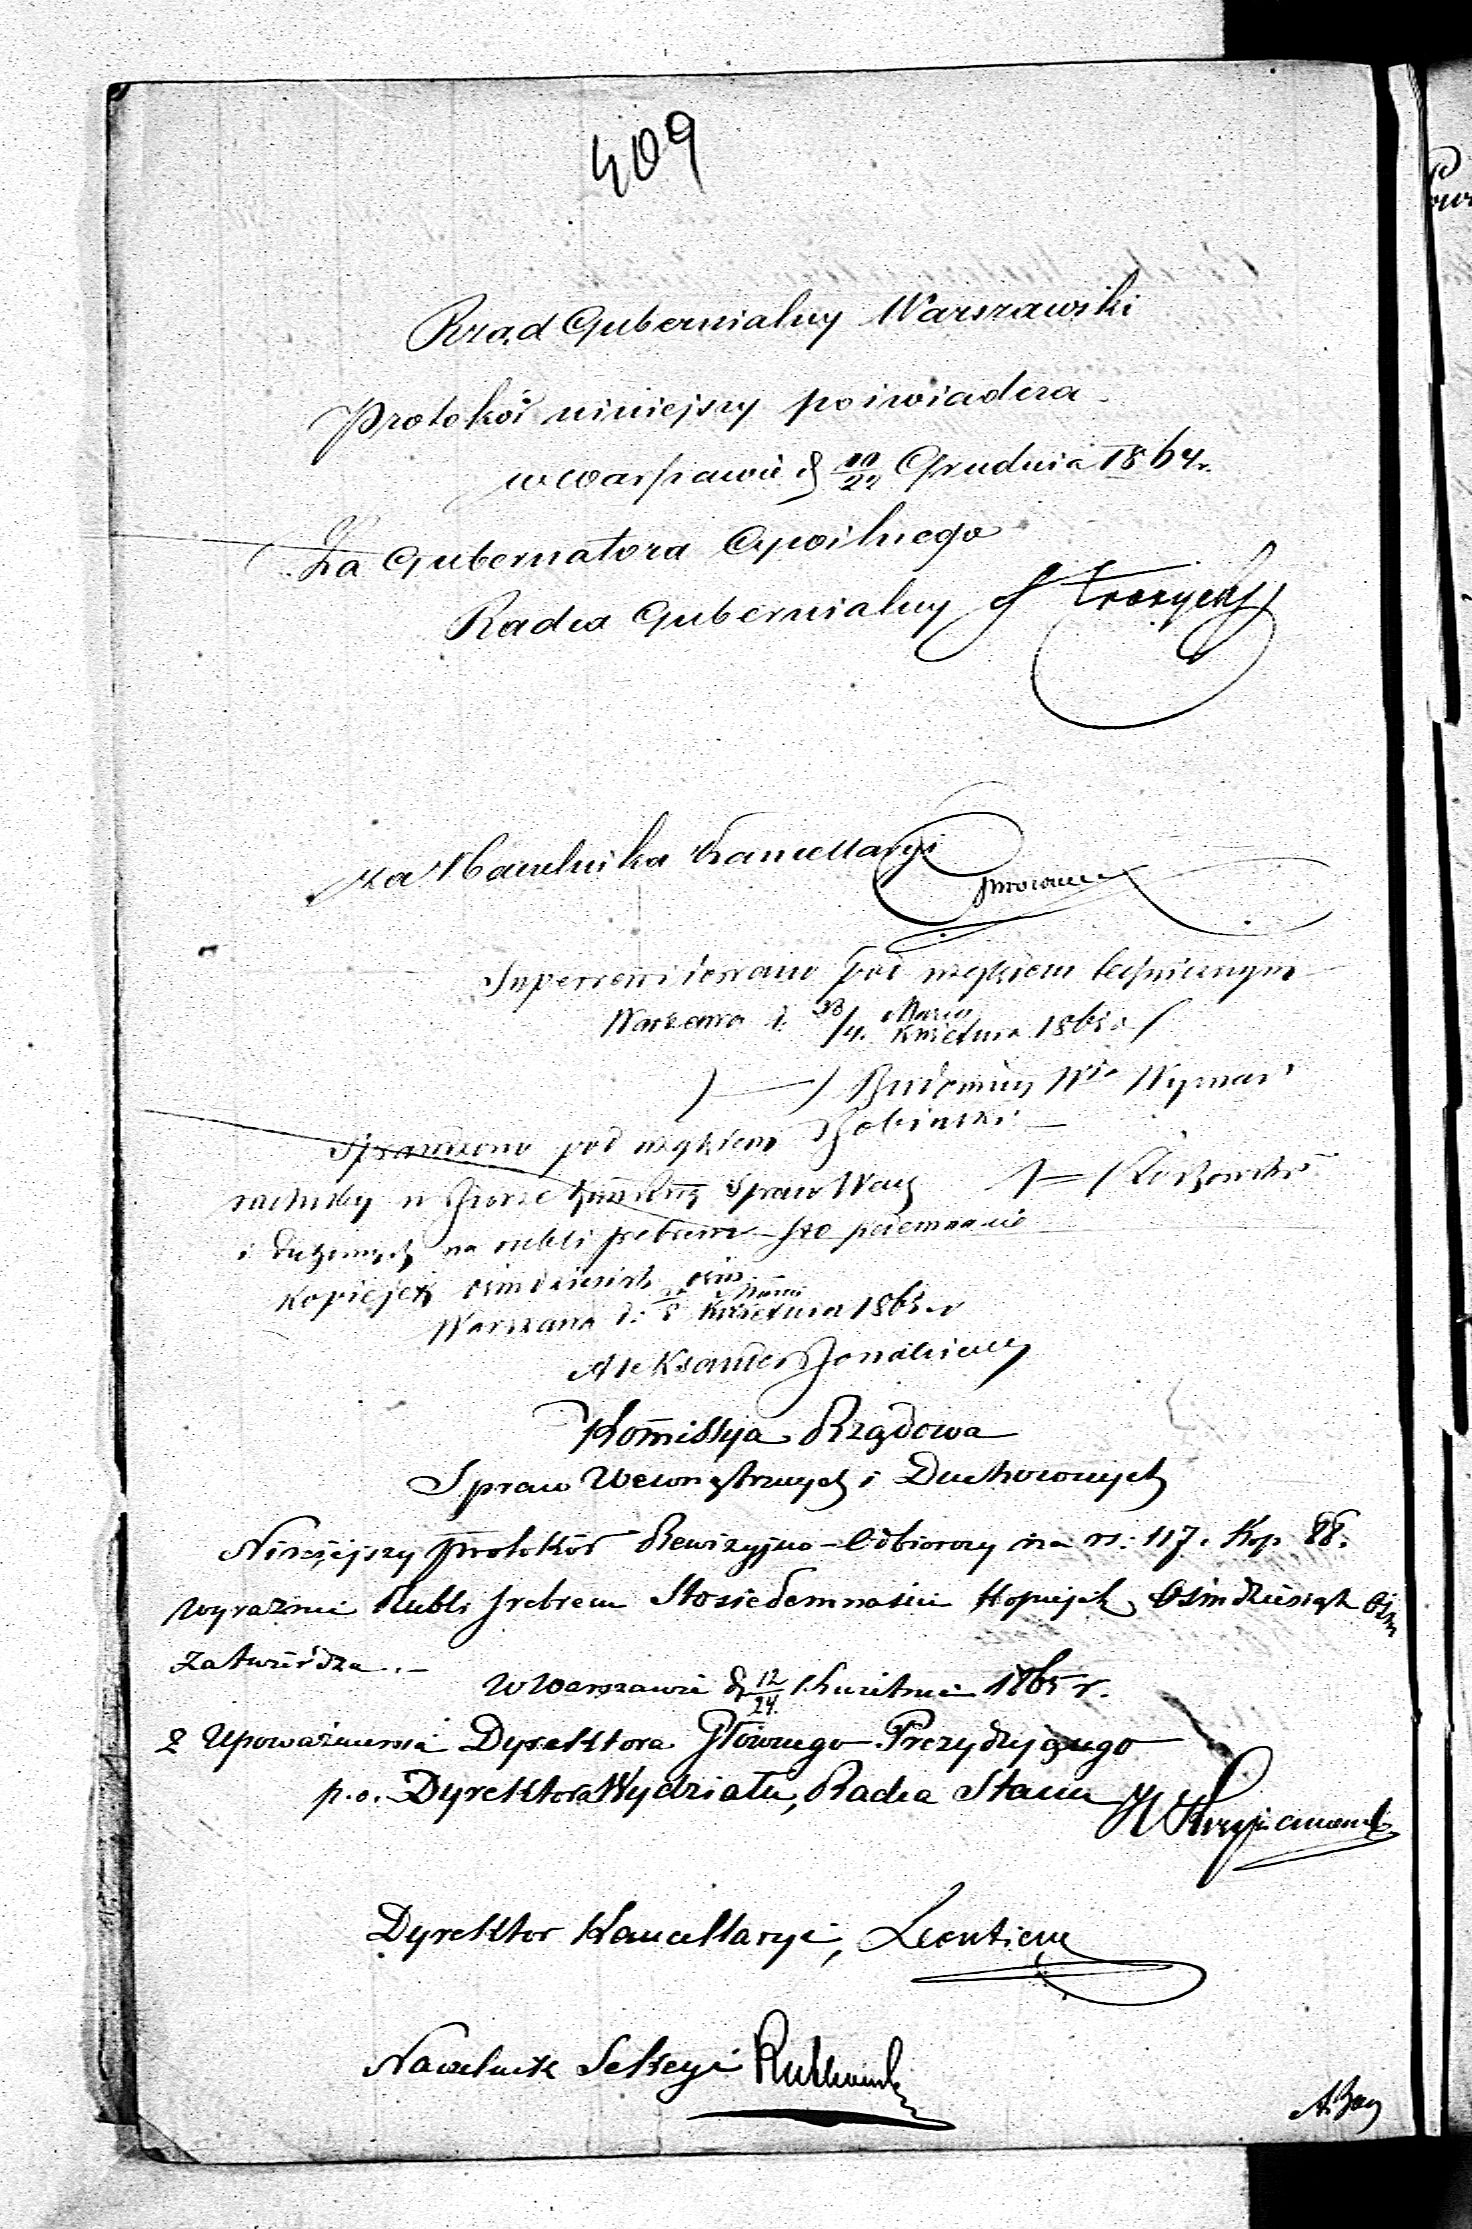 409
Rząd Gubernialny Warszawski
Protokół niniejszy poświadcza
w Warszawie d Grudnia 1864 r.
Za Gubernatora Cywilnego
Radca Gubernialny
Za Naczelnika Kancellaryi
Superrewidowano pod względem technicznym
Warszawa d. /4. Marca Kwietnia 1865 r
Budowniczy
Sprawdzono pod względem
rachuby w Biorze Spraw Wew
i Duchownych na rubli srebrem sto siedemnaście
Kopiejek ośmdziesiąt ośm
Warszawa d. Marca Kwietnia 1865 r
Aleksander
Kommissya Rządowa
Spraw Wewnętrznych i Duchownych
Niniejszy protokół Rewizyjno-Odbiorczy na rs: 117. Kop 88.
wyraźnie Rubli srebrem Stosiedemnaście Kopiejek Ośmdziesiąt Ośm
zatwierdza.–
w Warszawie d 12/24. Kwietnia 1865 r.
Z Upoważnienia Dyrektora Głównego Prezydującego
p.o. Dyrektora Wydziału, Radca Stanu
Dyrektor Kancellaryi,
Naczelnik Sekcyi